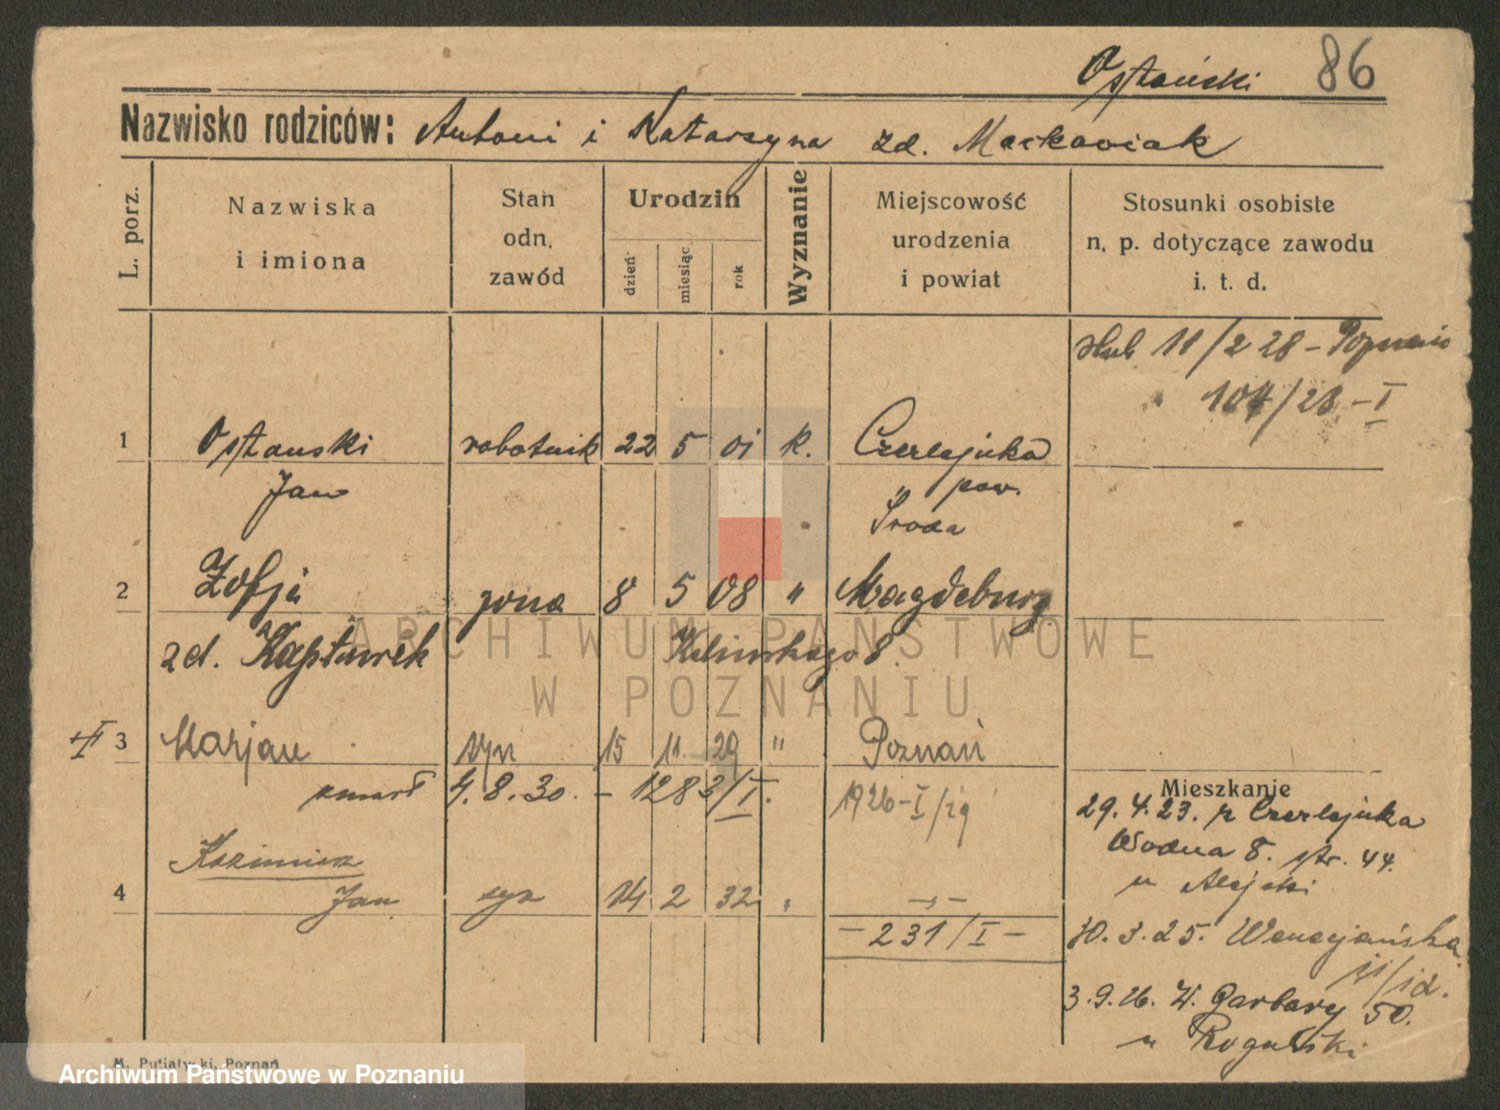 Ostański 86
Nazwisko rodziców: Antoni i Katarzyna zd. Maćkowiak
L. porz.
Nazwiska
i imiona
Stan
odn.
zawód
Urodzin
dzień
miesiąc
rok
Wyznanie
Miejscowość
urodzenia
i powiat
Stosunki osobiste
n. p. dotyczące zawodu
i. t. d.
ślub 11/2 28 - Poznań
104/28 - I
1 Ostański robotnik 22 5 01 k. Czerlejnka
Jan pow.
Środa
2 Zofja żona 8 5 08 " Magdeburg
zd. Kapturek
ARCHIWUM PAŃSTWOWE
W POZNANIU
3 Marjan syn 15 11 29 " Poznań
zmarł 4.8.30. - 1283/I. 1926-I/29
Mieszkanie
29.4.23. z Czerlejnka
Wodna 8. str. 44.
u
Kazimierz
4 Jan syn 14 2 32 "
- 231/I -
30.3.25. Wenecjańska
3.9.26. W. Garbary 50.
u Rogalski
M. Putiatycki, Poznań
Archiwum Państwowe w Poznaniu